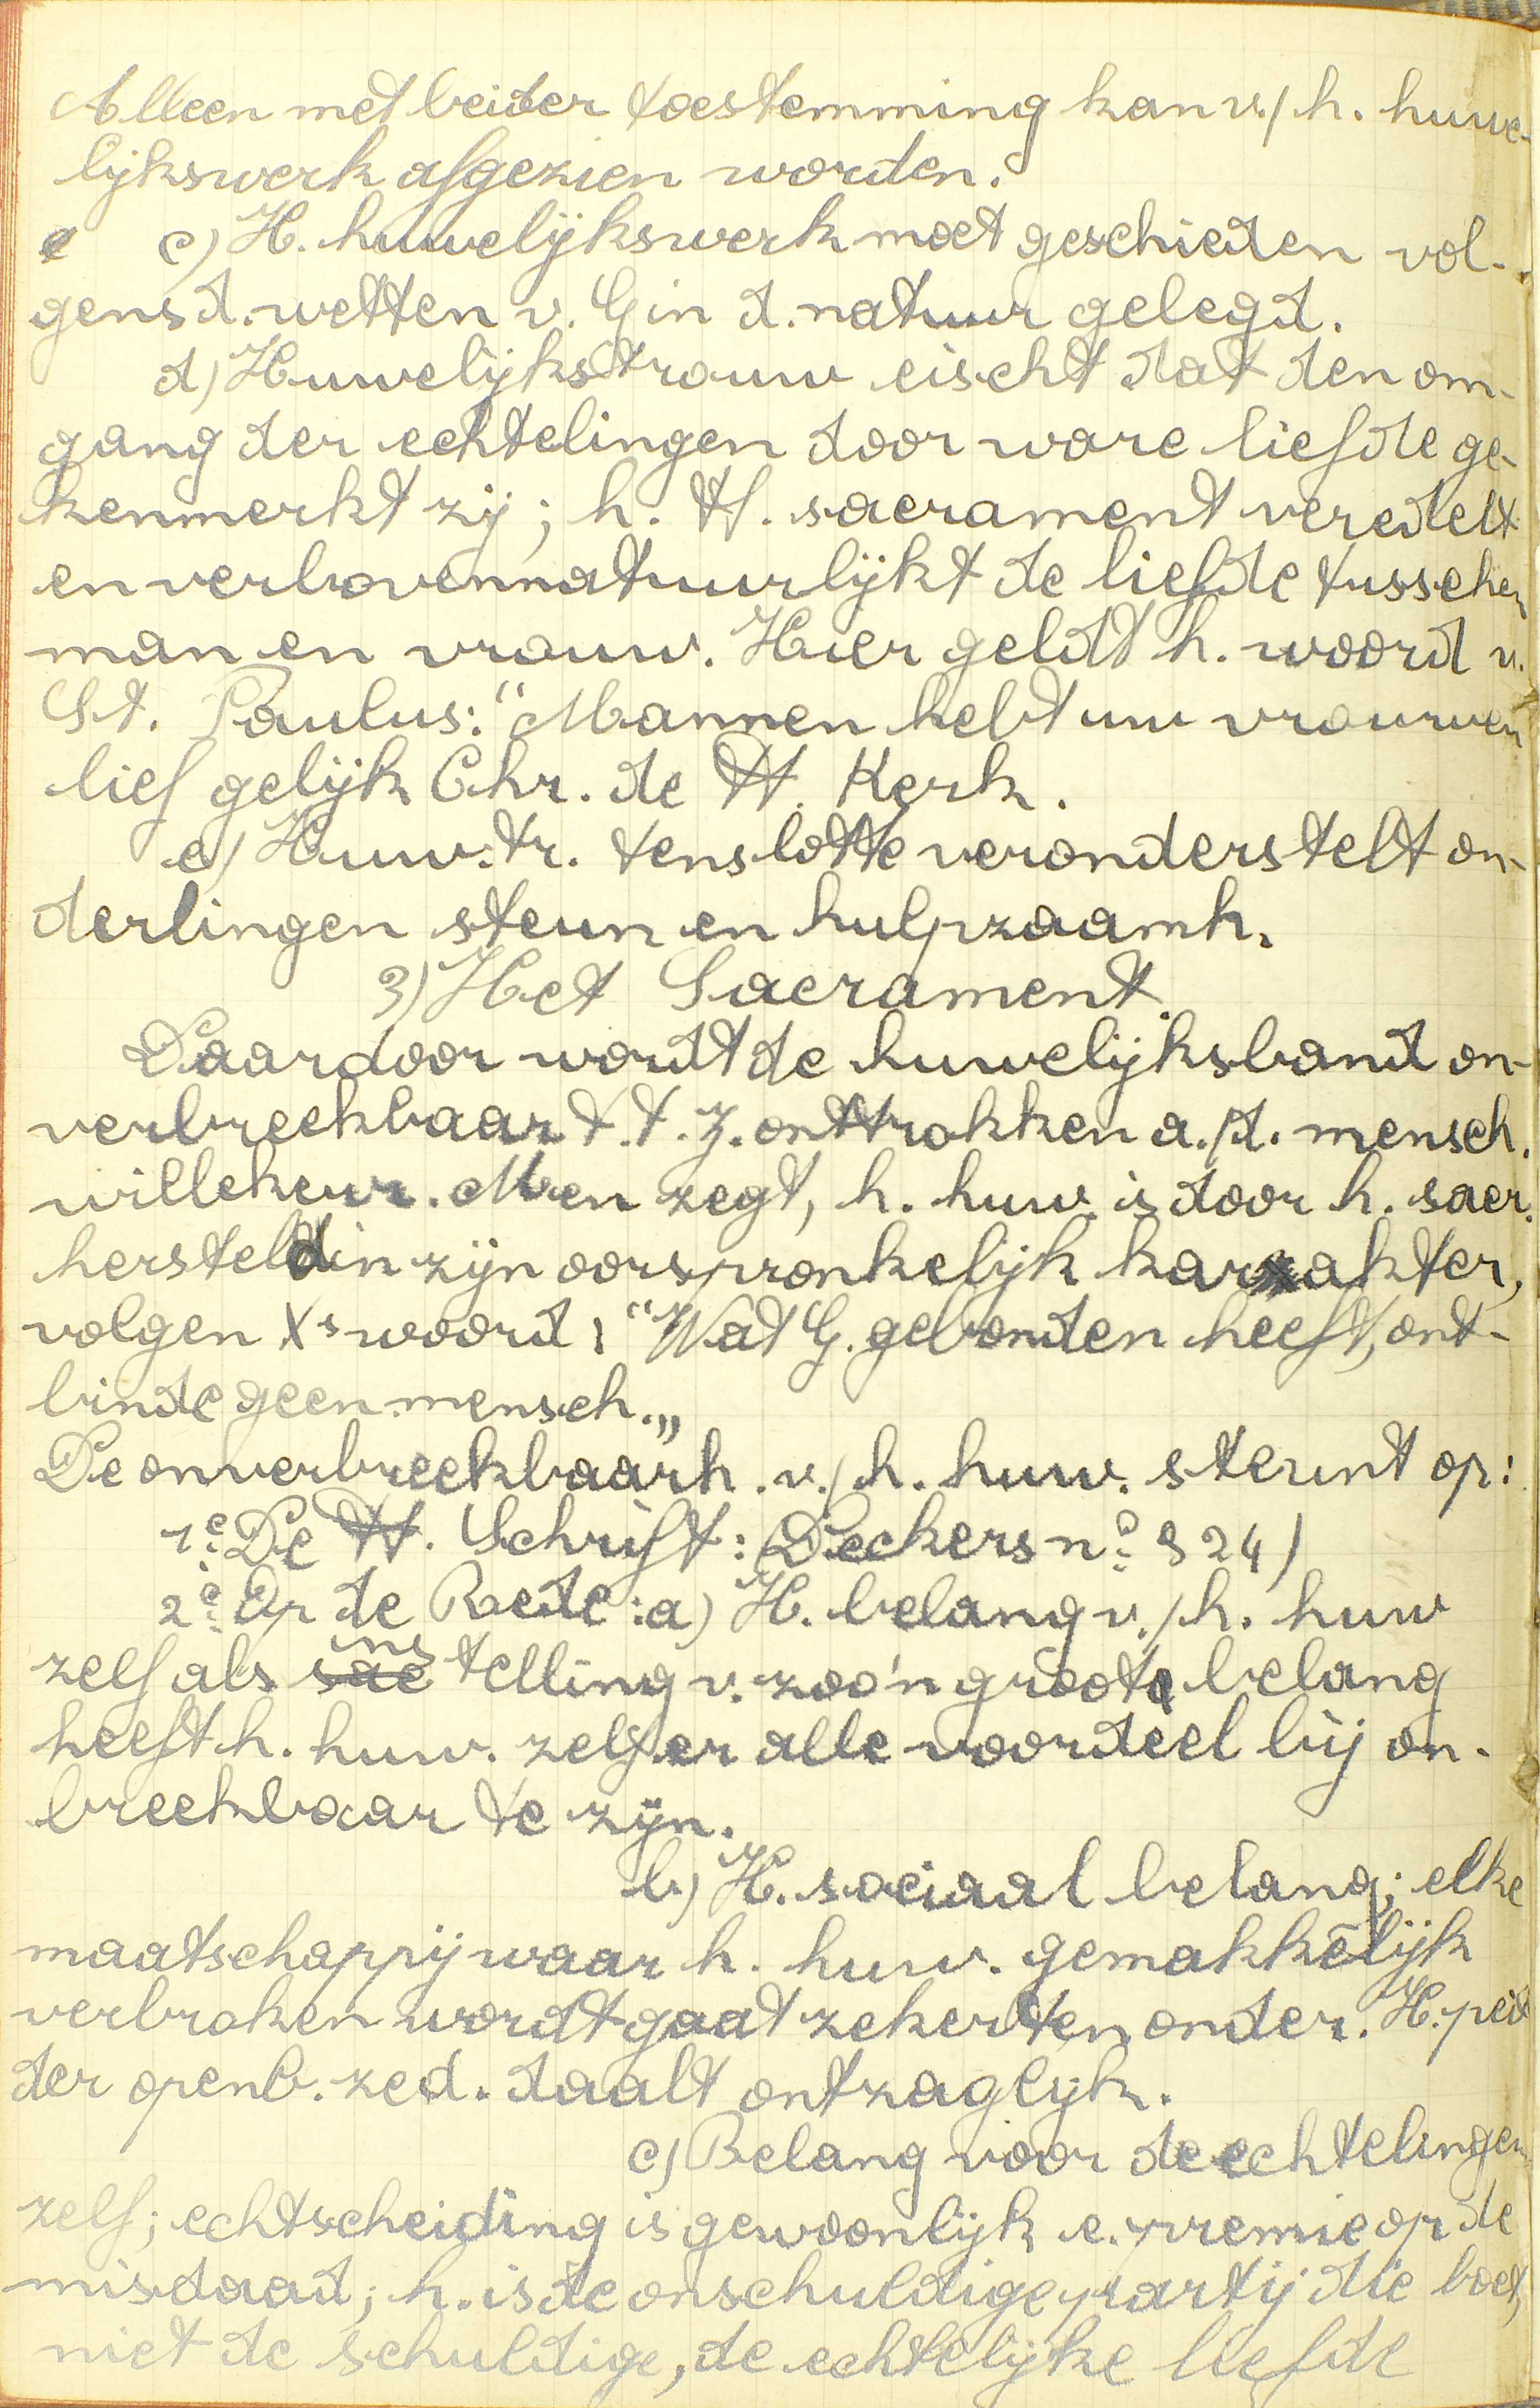 Alleen met beider toestemming kan v./h. huwe-
lijkswerk afgezien worden.
c) H. huwelijkswerk moet geschieden vol-
gens d. wetten v. G in d. natuur gelegd.
d) Huwelijkstrouw eischt dat den om-
gang der echtelingen door ware liefde ge-
kenmerkt zij; h. H. sacrament veredelt
en verbovennatuurlijkt de liefde tusschen
man en vrouw. Hier geldt h. woord v.
St. Paulus: "Mannen hebt uw vrouwen
lief gelijk Chr. de H. Kerk.
e) Huw. tr. tenslotte veronderstelt on-
derlingen steun en hulpzaamh.
3) Het Sacrament.
Daardoor wordt de huwelijksband on-
verbreekbaar t.t.z. onttrokken a./d. mensch.
willekeur. Men zegt, h. huw. is door h. sacr.
hersteld in zijn oorspronkelijk karakter,
volgen Xs woord: "Wat G. gebonden heeft, ont-
binde geen mensch.„
De onverbreekbaarh. v./h. huw. steunt op:
1e: De H. Schrift: (Deckers no: 824)
2e: Op de Rede: a) H. belang v./h. huw
zelf als sae instelling v. zoo'n groot belang
heeft h. huw. zelf er alle voordeel bij on-
breekbaar te zijn.
b) H. sociaal belang; elke
maatschappij waar h. huw. gemakkelijk
verbroken wordt gaat zeker ten onder. H. peil
der openb. zed. daalt ontzaglijk.
c) Belang voor de echtelingen
zelf; echtscheiding is gewoonlijk e. premie op de
misdaad; h. is de onschuldige partij die boet,
niet de schuldige, de echtelijke liefde